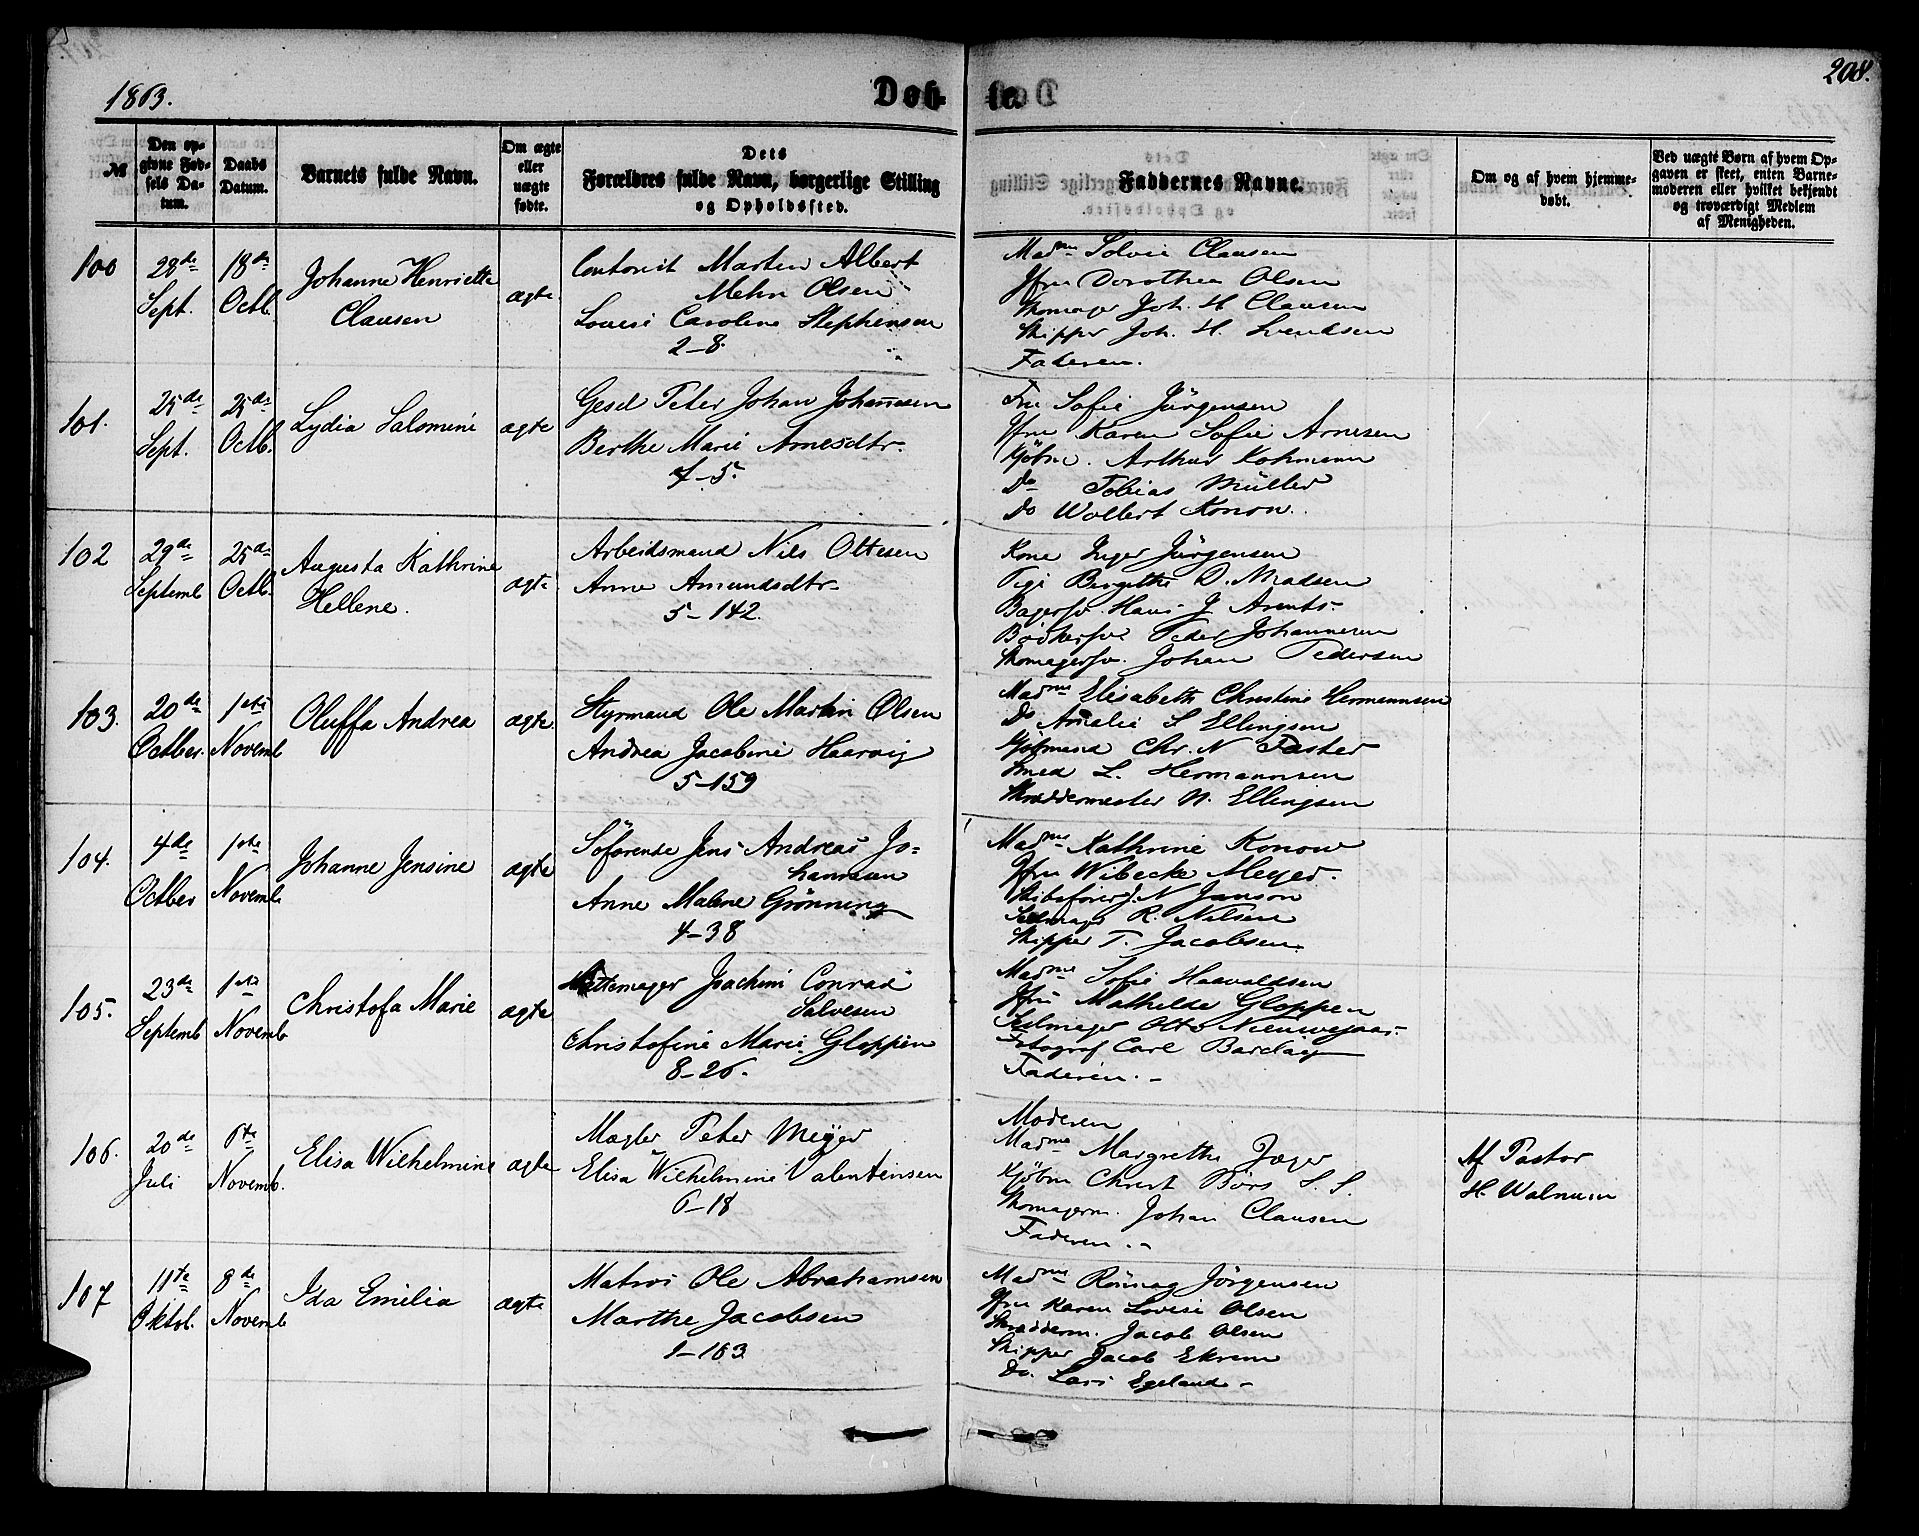 1863.
Døb-
te.
208.
№
Den op-
givne Fød-
sels Da-
tum.
Daabs
Datum.
Barnets fulde Navn.
Om ægte
eller
uægte
fødte.
Dets
Forældres fulde Navn, borgerlige Stilling
og Opholdssted.
Faddernes Navne.
Om og af hvem hjemme-
døbt.
Ved uægte Børn af hvem Op-
gaven er skeet, enten Barne-
moderen eller hvilket bekjendt
og troværdigt Medlem
af Menigheden.
100
28de
Sept.
18de
Octb.
Johanne Henriette
Clausen
ægte
Contorist Marten Albert
Mehn Olsen
Lovise Caroline Stephensen
2-8.
Madme Solvie Clausen
Jfru Dorothea Olsen
Skomager Joh. H Clausen
Skipper Joh. H. Svendsen
Faderen.
101.
25de
Sept.
25de
Octb.
Lydia Salomine
ægte
Gesel Peter Johan Johannesen
Berthe Marie Arnesdtr.
7-5.
Fru Sofie Jürgensen
Jfru Karen Sofie Arnesen
Kjöbm. Arthur Kohmann
Do Tobias Müller
Do Wollert Konow.
102
29de
Septemb
25de
Octb.
Augusta Kathrine
Hellene.
ægte
Arbeidsmand Nils Ottesen
Anne Amundsdtr
5-142.
Kone Inger Jürgensen
Pige Birgithe D. Madsen
Bagersv. Hans J Arents
Bödkersve Peder Johannesen
Skomagersv. Johan Pedersen
103.
20de
Octber.
1ste
Novemb
Oluffa Andrea
ægte.
Styrmand Ole Martin Olsen
Andrea Jacobine Haarvig
5-159
Madme Elisabeth Christine Hermannsen
Do Amalie S Ellingsen
Kjöbmand Chr. N Faster
Smed L. Hermannsen
Skræddermester N. Ellingsen
104.
4de
Octber
1ste
Novemb.
Johanne Jensine
ægte
Söfarende Jens Andreas Jo-
hannesen
Anne Malene Grönning
4-38
Madme Kathrine Konow
Jfru Wibecke Meyer.
Skibsförer J. N Janson
Seilmager R. Nilsen
Skipper T. Jacobsen.
105.
23de
Septemb
1ste
Novemb
Christofa Marie
ægte
Hattemager Joachim Conrad
Salvesen
Christofine Marie Gloppen
8-26.
Madme Sofie Haavaldsen
Jfru Mathilde Gloppen
Seilmager Otto Nieuwejaar
Fotograf Carl Barclay
Faderen.-
106.
20de
Juli
6te
Novemb.
Elisa Wilhelmine
ægte
Mægler Peter Meyer
Elisa Wilhelmine Valentinsen
6-18
Moderen
Madme Margrethe Jæger
Kjöbm Christ Börs S. S.
Skomagerm. Johan Clausen
Faderen.-
Af Pastor
H. Walnum
107
11te
Oktob.
8de
Novemb
Ida Emilia
ægte
Matros Ole Abrahamsen
Marthe Jacobsen
1-163.
Madme Rönnag Jörgensen
Jfru Karen Lovise Olsen
Skrædderm. Jacob Olsen
Skipper Jacob Ekrem
Do. Lars Egeland-